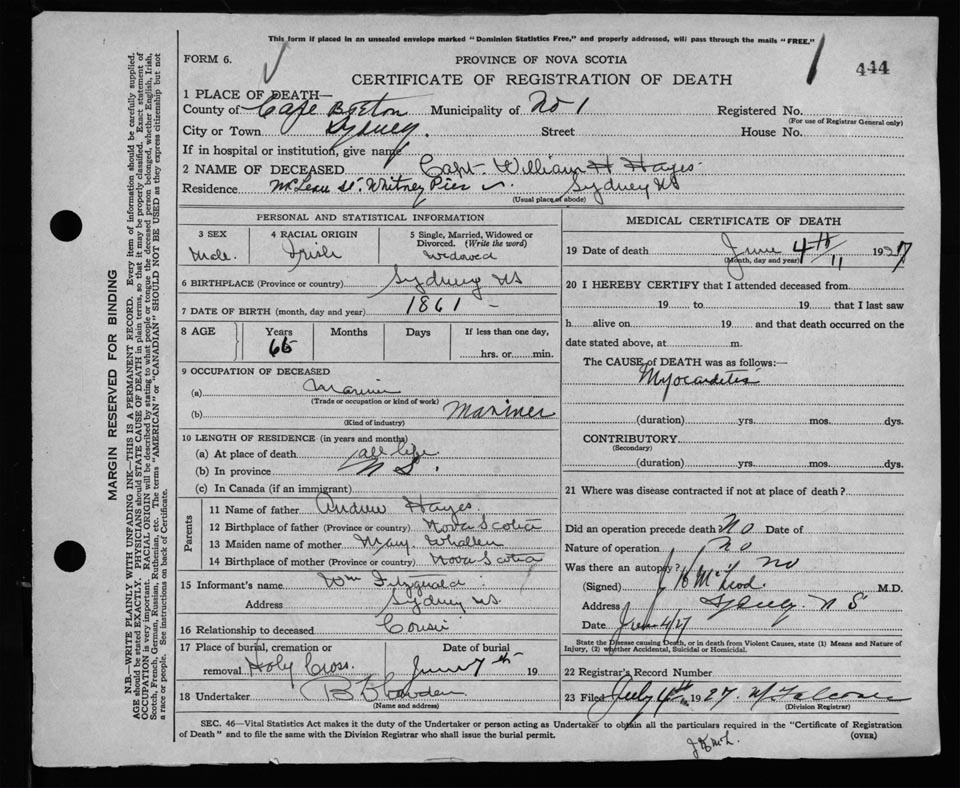 This form if placed in an unsealed envelope marked "Dominion Statistics Free," and properly addressed, will pass through the mails "FREE."
FORM 6.
PROVINCE OF NOVA SCOTIA
444
CERTIFICATE OF REGISTRATION OF DEATH
1 PLACE OF DEATH—
County of Cape Breton Municipality of No 1 Registered No.
(For use of Registrar General only)
City or Town Sydney. Street House No.
If in hospital or institution, give name
2 NAME OF DECEASED Capt. William H Hayes
Residence McLean St. Whitney Pier Sydney NS
(Usual place of abode)
PERSONAL AND STATISTICAL INFORMATION
3 SEX
Male.
4 RACIAL ORIGIN
Irish
5 Single, Married, Widowed or Divorced. (Write the word)
Widowed
6 BIRTHPLACE (Province or country) Sydney NS
7 DATE OF BIRTH (month, day and year) 1861 -
8 AGE Years Months Days If less than one day,
hrs. or min.
9 OCCUPATION OF DECEASED
(a)
(Trade or occupation or kind of work)
(b) Mariner
(Kind of industry)
10 LENGTH OF RESIDENCE (in years and months)
(a) At place of death all life
(b) In province N S.
(c) In Canada (if an immigrant)
Parents
11 Name of father Andrew Hayes
12 Birthplace of father (Province or country) Nova Scotia
13 Maiden name of mother Mary Whallen
14 Birthplace of mother (Province or country) Nova Scotia
15 Informant's name Wm Fitzgerald
Address Sydney NS.
16 Relationship to deceased Cousin
17 Place of burial, cremation or removal Holy Cross.
Date of burial June 7th 19
18 Undertaker
(Name and address)
MEDICAL CERTIFICATE OF DEATH
19 Date of death June 4th 1927
(Month, day and year)
20 I HEREBY CERTIFY that I attended deceased from
19 to 19 that I last saw
h alive on 19 and that death occurred on
date stated above, at m.
The CAUSE of DEATH was as follows:—
Myocarditis
(duration) yrs. mos. dys.
CONTRIBUTORY
(Secondary)
(duration) yrs. mos. dys.
21 Where was disease contracted if not at place of death?
Did an operation precede death? No Date of
Nature of operation no
Was there an autopsy? no
(Signed) McLeod. M.D.
Address Sydney N S
Date June 4/27
State the Disease causing Death, or in death from Violent Causes, state (1) Means and Nature of
Injury, (2) whether Accidental, Suicidal or Homicidal.
22 Registrar's Record Number
23 Filed July 4th 1927.
(Division Registrar)
SEC. 46—Vital Statistics Act makes it the duty of the Undertaker or person acting as Undertaker to obtain all the particulars required in the "Certificate of Registration
of Death" and to file the same with the Division Registrar who shall issue the burial permit.
(OVER)
MARGIN RESERVED FOR BINDING
N.B.—WRITE PLAINLY WITH UNFADING INK—THIS IS A PERMANENT RECORD. Every item of information should be carefully supplied.
AGE should be stated EXACTLY. PHYSICIANS should STATE CAUSE OF DEATH in plain terms, so that it may be properly classified. Exact statement of
OCCUPATION is very important. RACIAL ORIGIN will be described by stating to what people or tongue the deceased person belonged, whether English, Irish,
Scotch, French, German, Russian, Ruthenian, etc. The terms "AMERICAN" or "CANADIAN" SHOULD NOT BE USED as they express citizenship but not
a race or people. See instructions on back of Certificate.